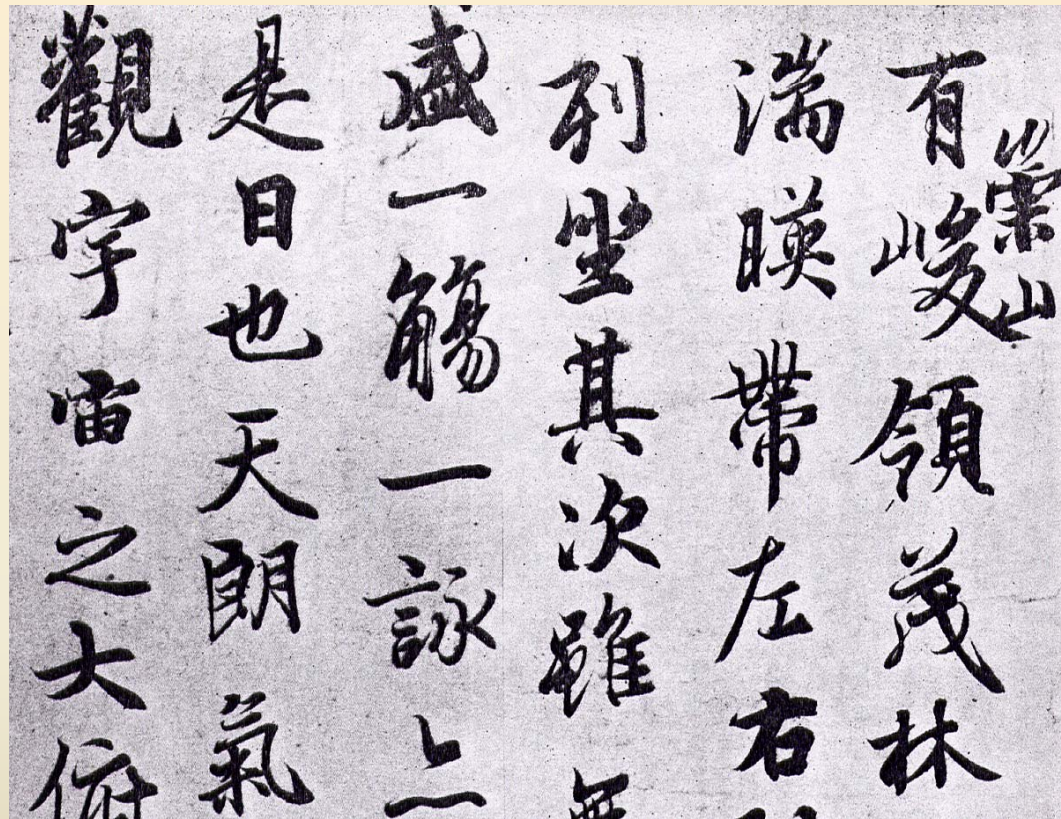 有崇山峻領茂林
湍暎帶左右
列坐其次雖無
盛一觴一詠亦
是日也天朗氣
觀宇宙之大俯